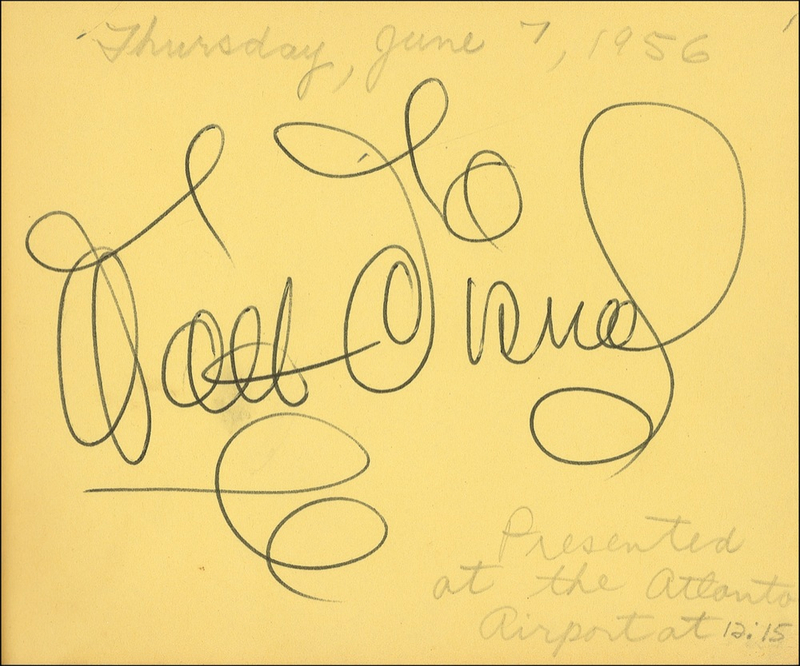 Thursday, June 7, 1956
Walt Disney
Presented
at the Atlanta
Airport at 12:15